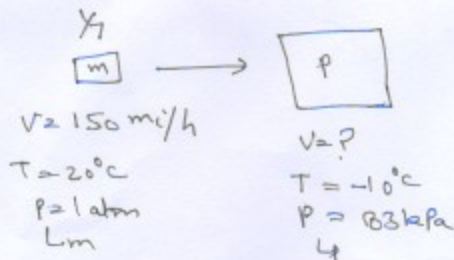 m
V = 150 mi/h
T = 20°C
P = 1 atm
Lm
P
V = ?
T = -10°C
P = 83 kPa